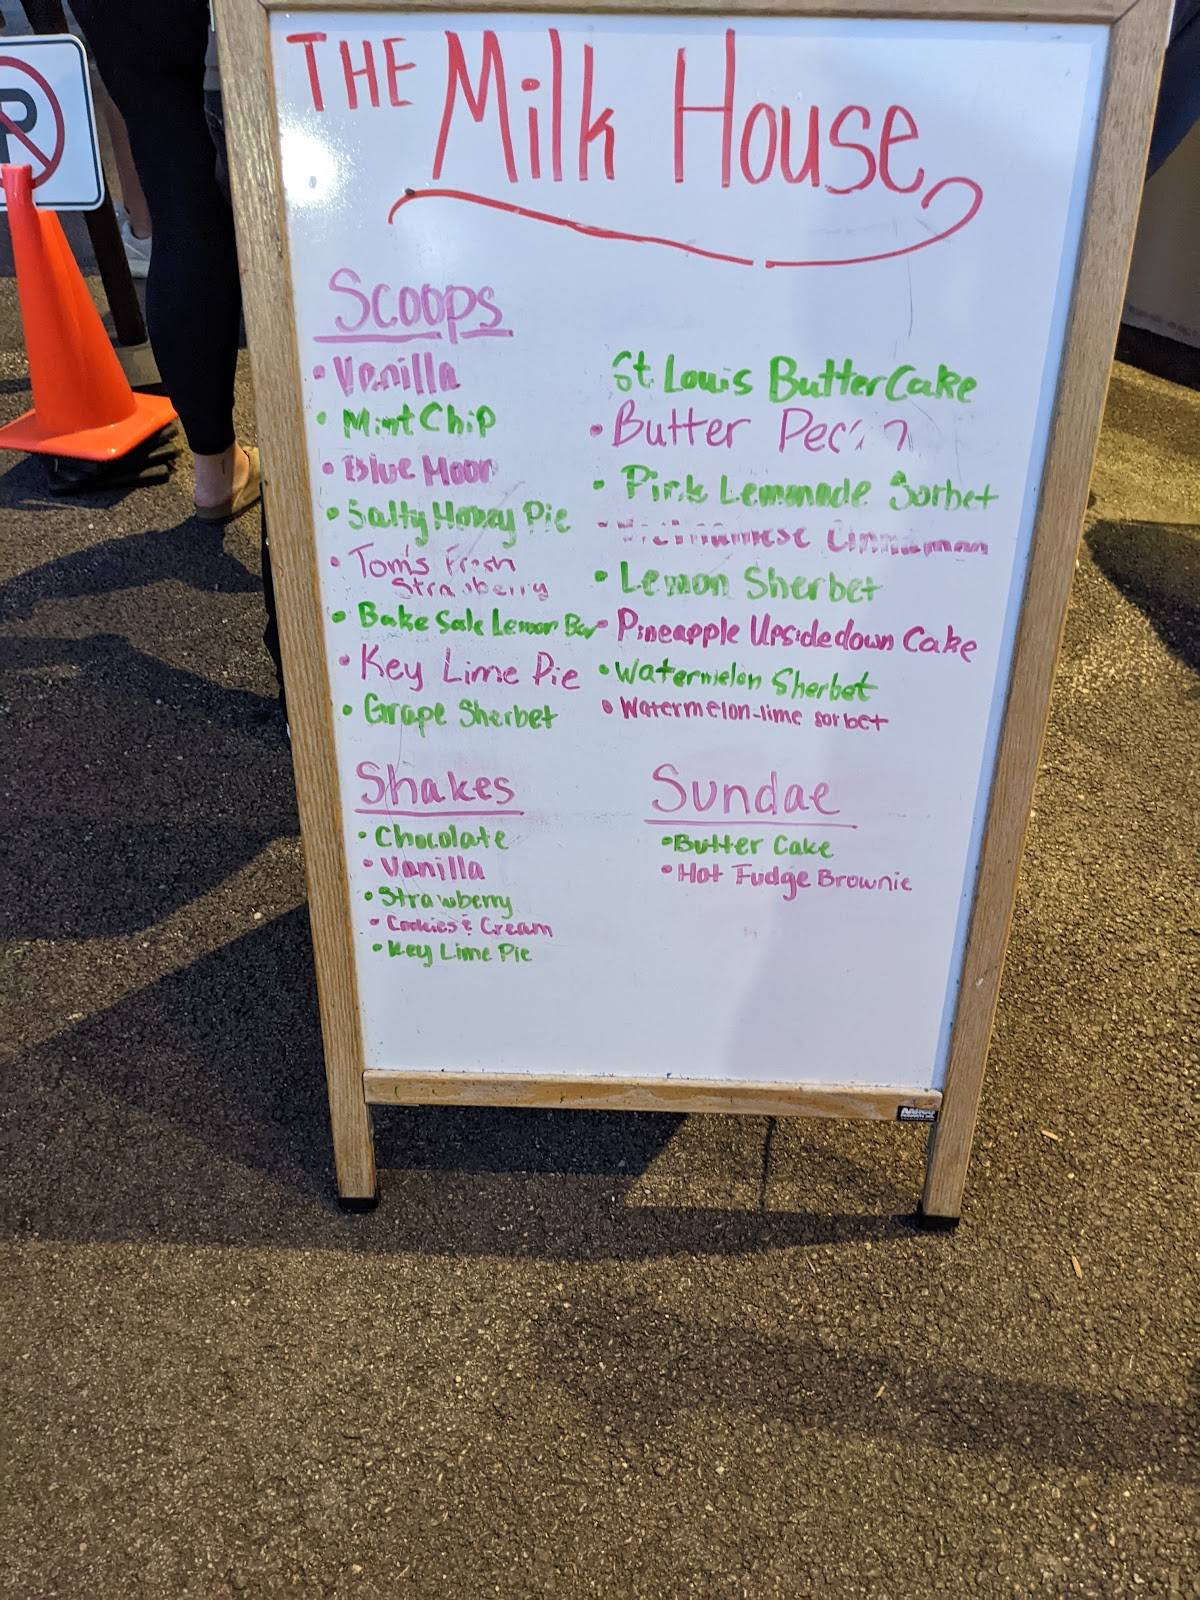 P
THE Milk House
Scoops
• Vanilla
• Mint Chip
• Blue Moon
• Salty Honey Pie
• Tom's Fresh
Strawberry
• Bake Sale Lemon Bar
• Key Lime Pie
• Grape Sherbet
St Louis Butter Cake
• Butter Pecan
• Pink Lemonade Sorbet
• Vietnamese Cinnamon
• Lemon Sherbet
• Pineapple Upsidedown Cake
• Watermelon Sherbet
• Watermelon-lime sorbet
Shakes
• Chocolate
• Vanilla
• Strawberry
• Cookies & Cream
• Key Lime Pie
Sundae
• Butter Cake
• Hot Fudge Brownie